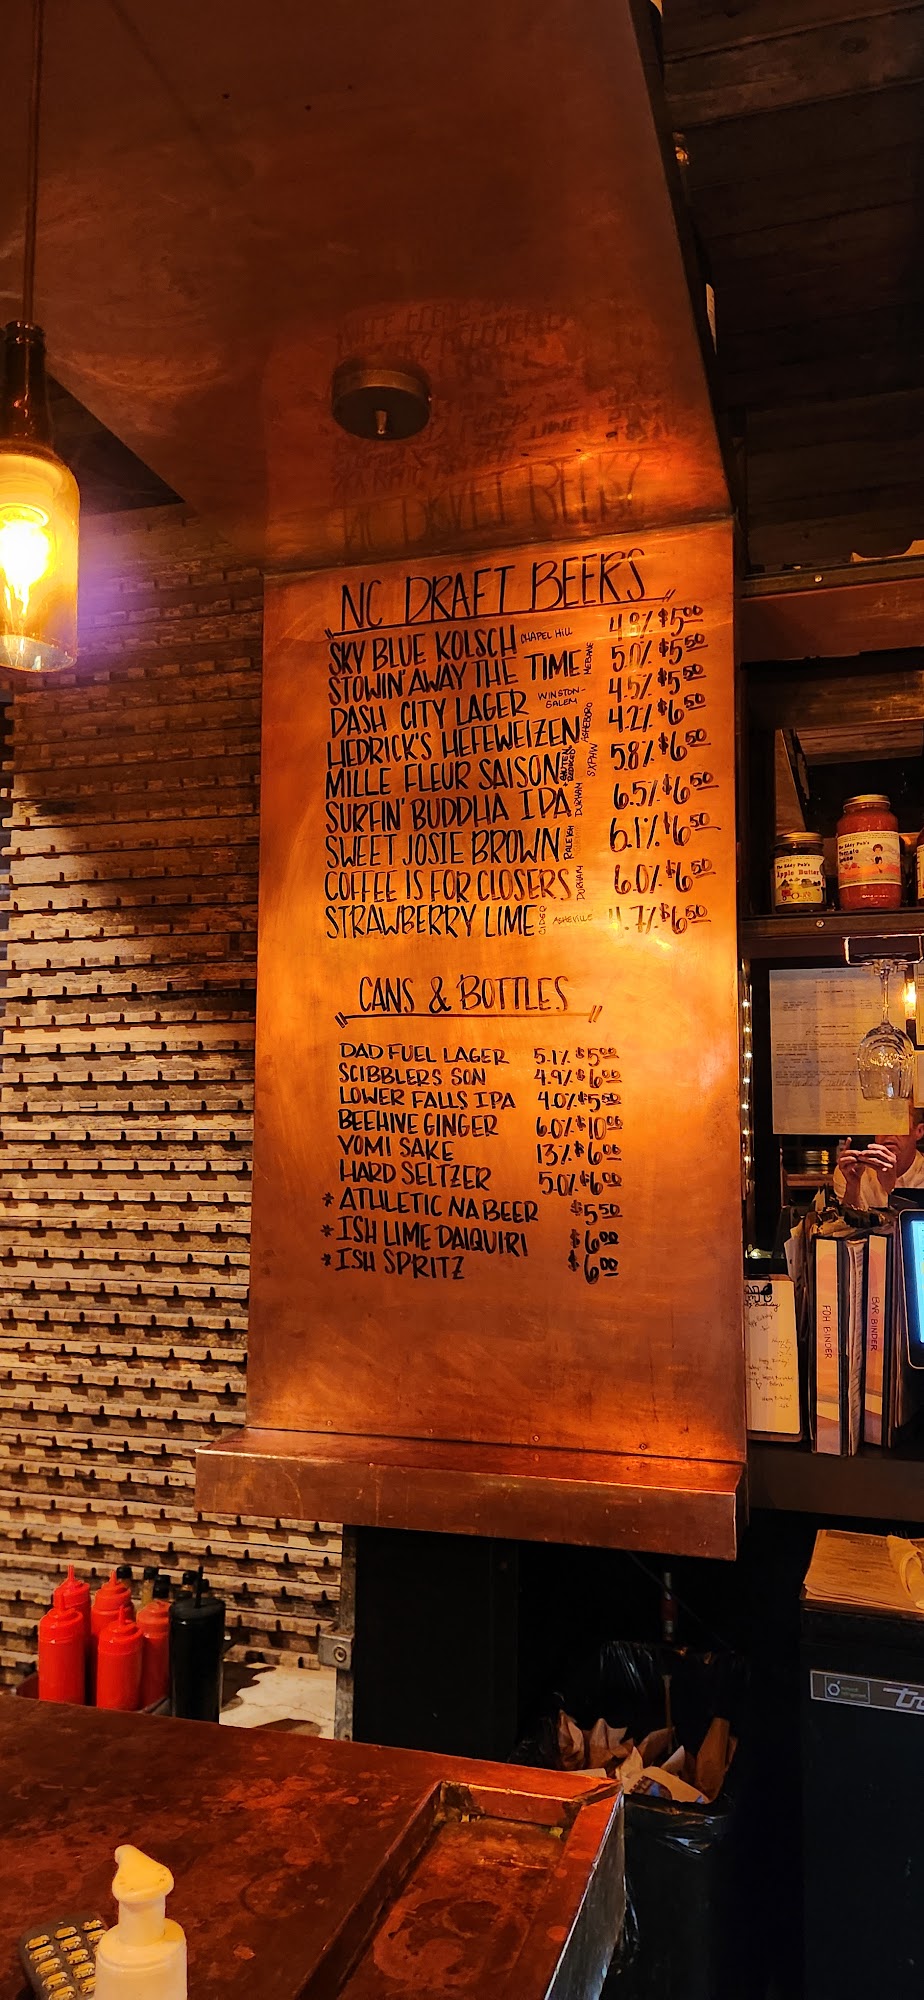 NC DRAFT BEERS
SKY BLUE KOLSCH CHAPEL HILL 4.8% $5.00
STOWIN' AWAY THE TIME MEBANE 5.0% $5.50
DASH CITY LAGER WINSTON-SALEM 4.5% $5.50
HEDRICK'S HEFEWEIZEN ASHEBORO 4.2% $6.50
MILLE FLEUR SAISON GLUTEN REDUCED SXPHW 5.8% $6.50
SURFIN' BUDDHA IPA DURHAM 6.5% $6.50
SWEET JOSIE BROWN RALEIGH 6.1% $6.50
COFFEE IS FOR CLOSERS DURHAM 6.0% $6.50
STRAWBERRY LIME CIDER ASHEVILLE 4.7% $6.50
CANS & BOTTLES
DAD FUEL LAGER 5.1% $5.00
SCIBBLERS SON 4.9% $6.00
LOWER FALLS IPA 4.0% $5.50
BEEHIVE GINGER 6.0% $10.00
YOMI SAKE 13% $6.00
HARD SELTZER 5.0% $6.00
* ATHLETIC NA BEER $5.50
* ISH LIME DAIQUIRI $6.00
* ISH SPRITZ $6.00
The Eddy Pub's
Apple Butter
The Eddy Pub's
Tomato
FOH BINDER
BAR BINDER